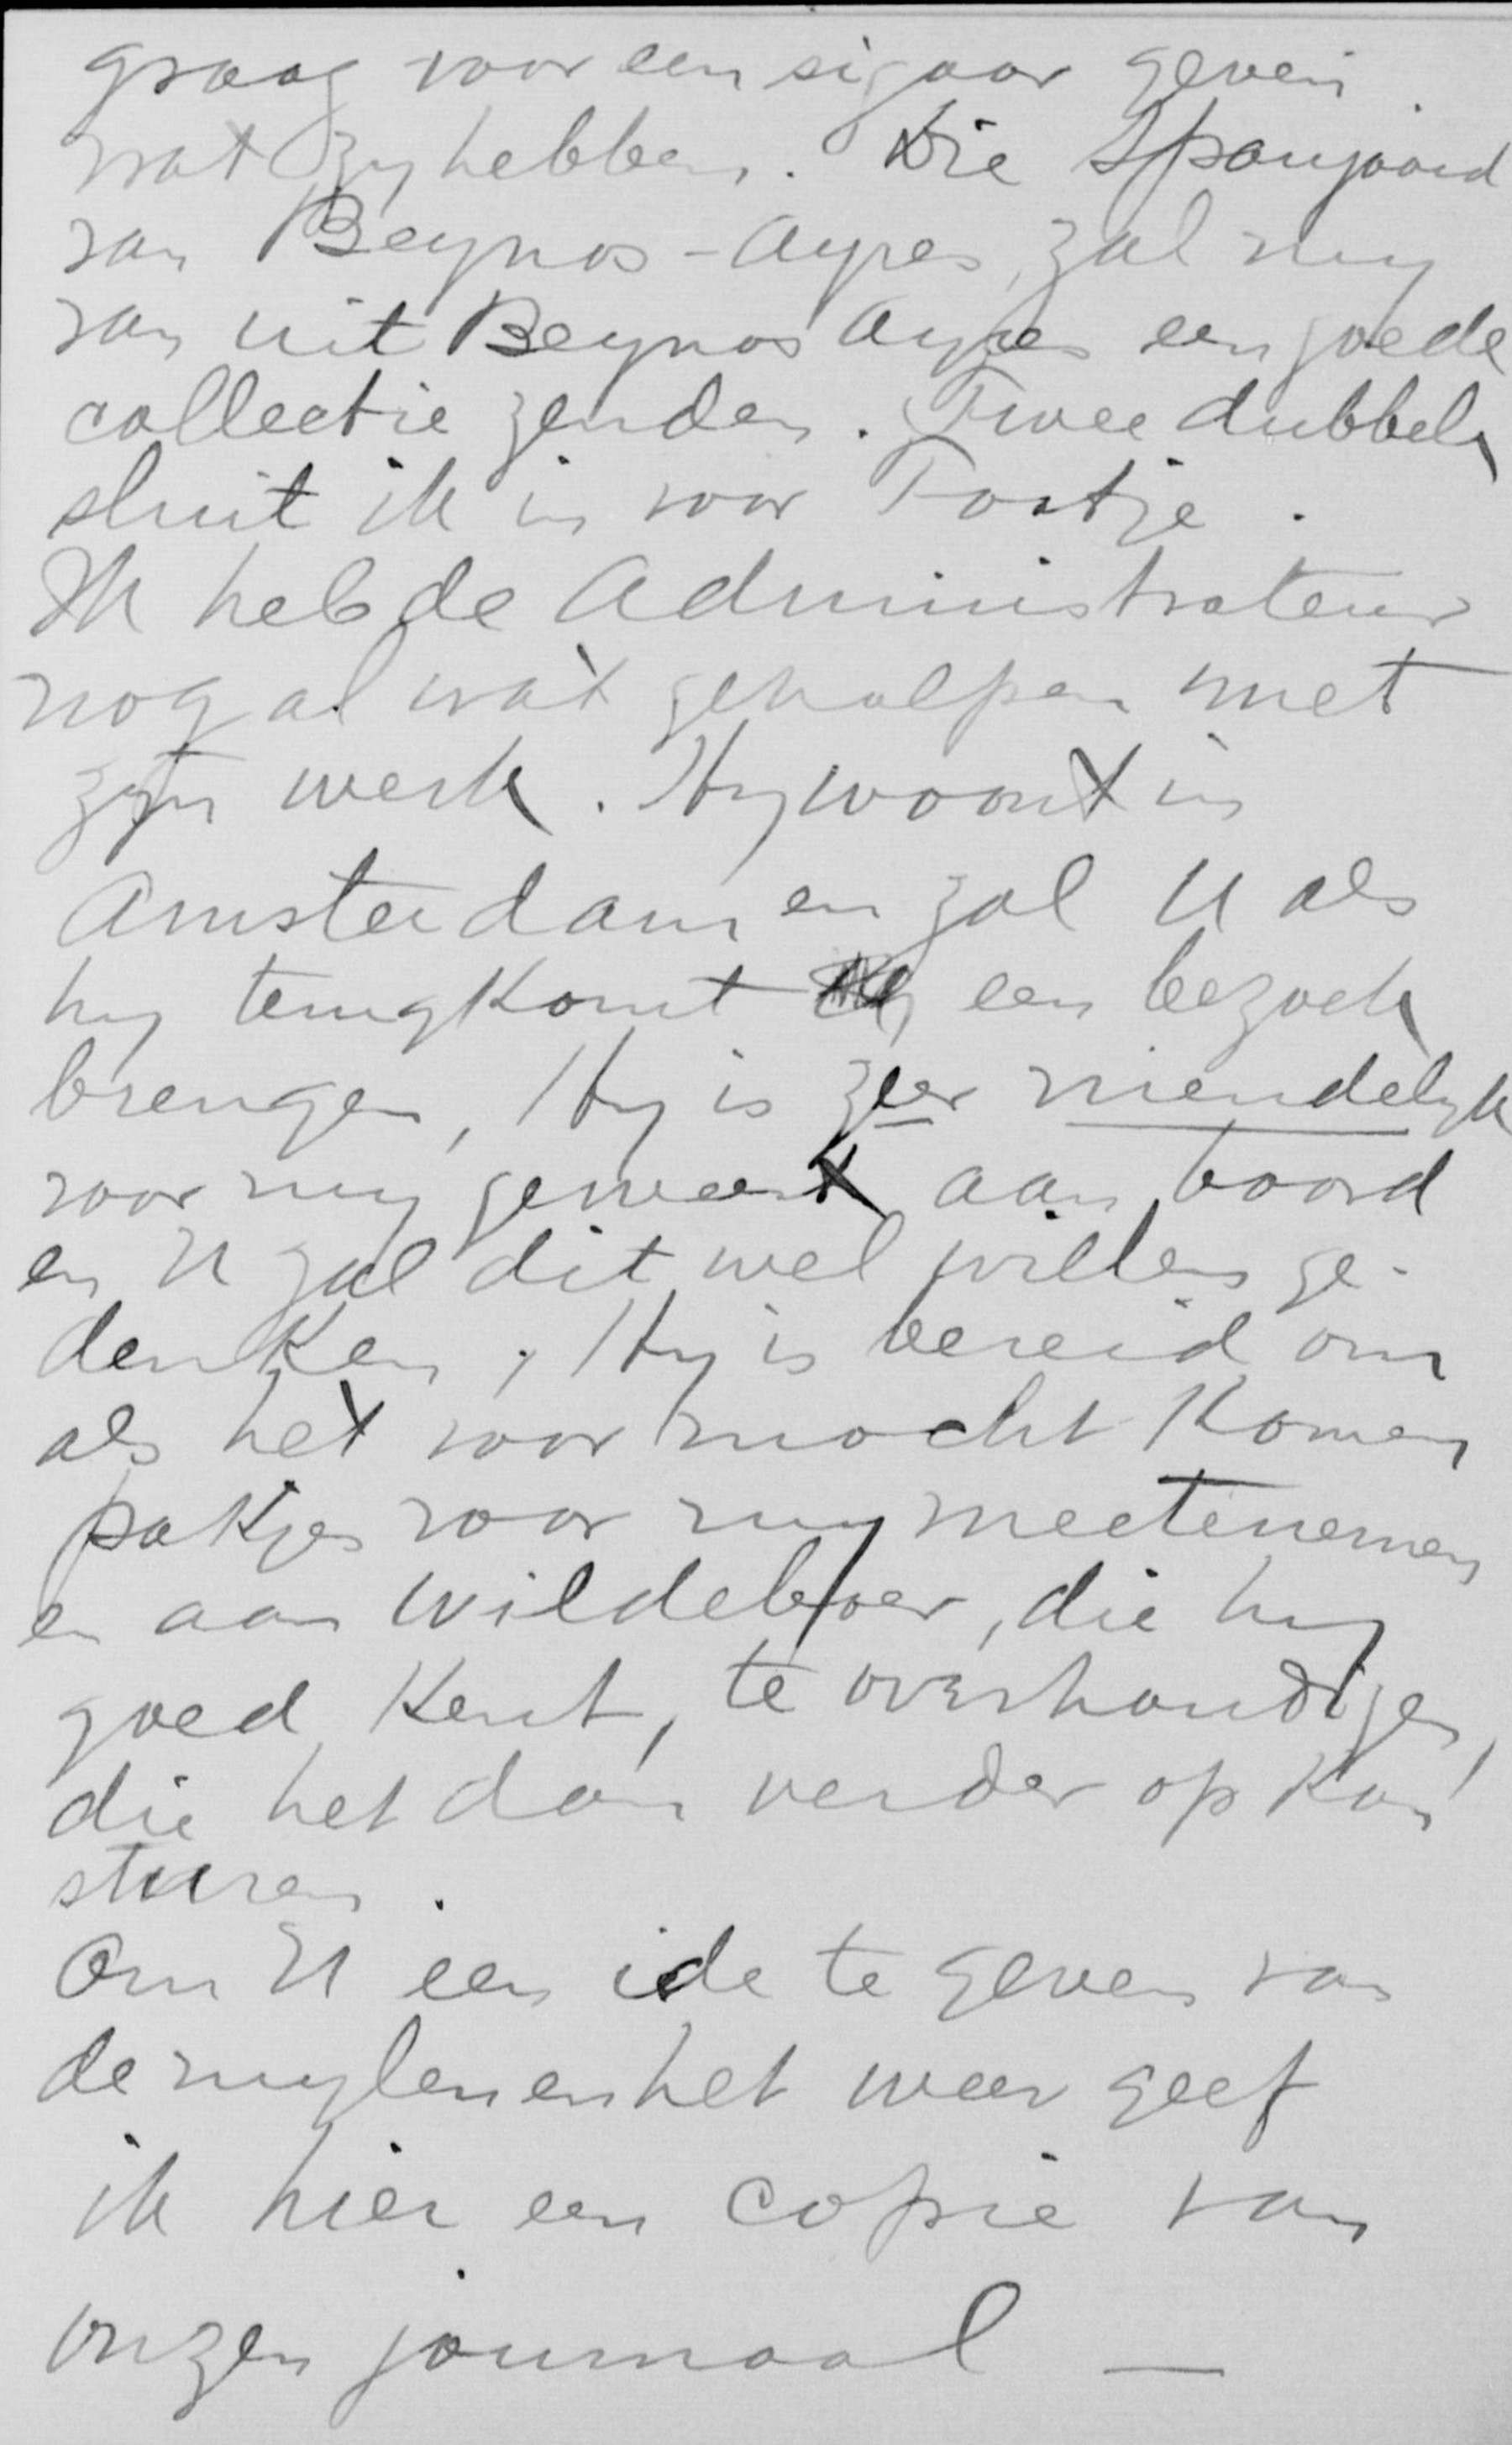 graag voor een sigaar geven
wat zy hebben. Die Spanjaard
van Beynos-Ayres, zal my
van uit Beynos Ayres een goede
collectie zenden. Twee dubbele
sluit ik in voor Tootje.
Ik heb de Administrateur
nog al wat geholpen met
zyn werk. Hy woont in
Amsterdam en zal U als
hy terugkomt een bezoek
brengen, Hy is zeer vriendelyk
voor my geweest aan boord
en U zal dit wel willen ge-
denken, Hy is bereid om
als het voor mocht komen
pakjes voor my meetenemen
en aan Wildeboer, die hy
goed kent, te overhandigen,
die het dan verder op kan
sturen.
Om U een ide te geven van
de mylen en het weer geef
ik hier een copie van
onzen journaal —